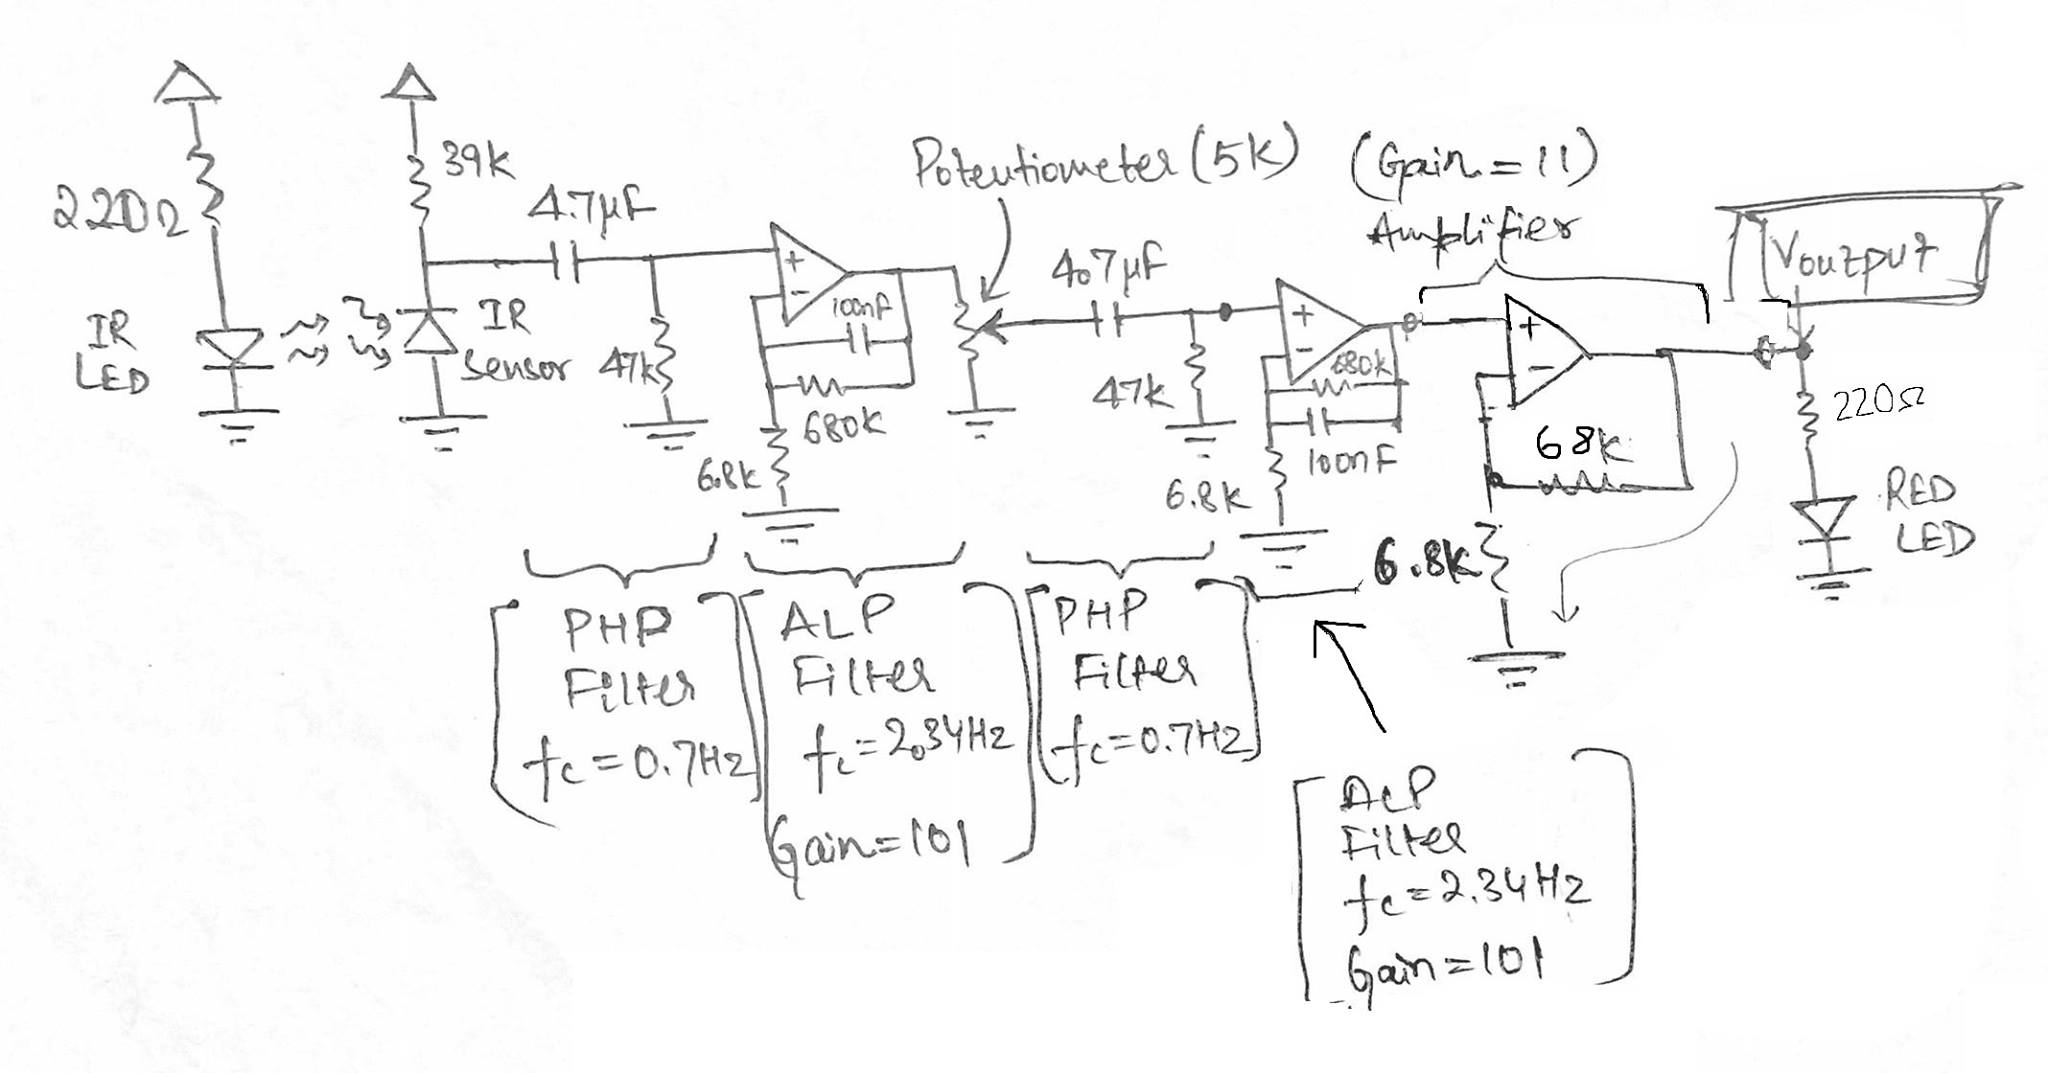 220Ω
IR
LED
39k
4.7μf
IR
Sensor
47k
+
-
100nF
680K
6.8k
Potentiometer (5K)
4.7μf
47k
+
-
680k
100nF
6.8k
(Gain = 11)
Amplifier
+
-
68k
6.8k
Voutput
220Ω
RED
LED
PHP
Filter
fc = 0.7Hz
ALP
Filter
fc = 2.34Hz
Gain = 101
PHP
Filter
fc = 0.7Hz
ALP
Filter
fc = 2.34Hz
Gain = 101